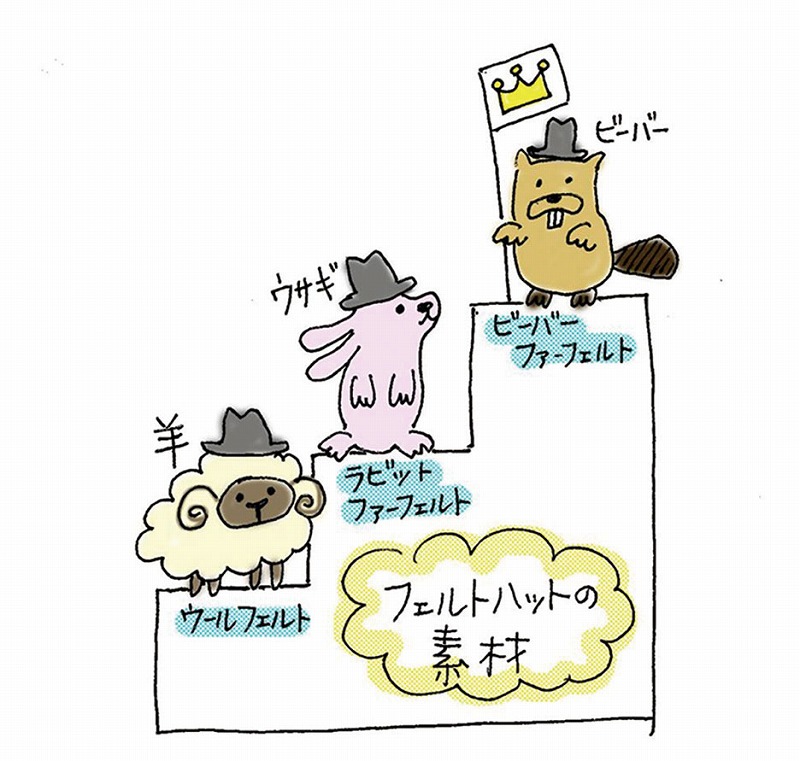 ビーバー
ビーバー
ファーフェルト
ウサギ
ラビット
ファーフェルト
羊
ウールフェルト
フェルトハットの
素材